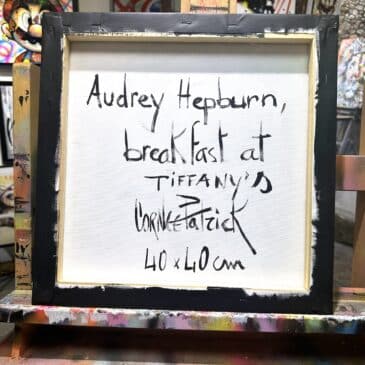 Audrey Hepburn,
breakfast at
TIFFANY'S
CORNÉE Patrick
40 x 40 cm